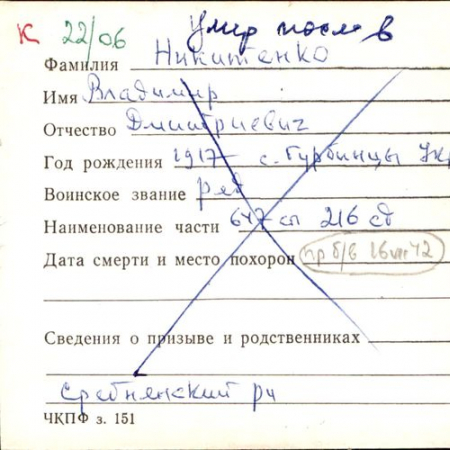 К 22/06 Умер после в
Фамилия Никитенко
Имя Владимир
Отчество Дмитриевич
Год рождения 1917 с. Гурбинцы Укр
Воинское звание ряд
Наименование части 647 сп 216 сд
Дата смерти и место похорон пр б/в 16 VIII 42
Сведения о призыве и родственниках
Сребнянский рн
ЧКПФ з. 151